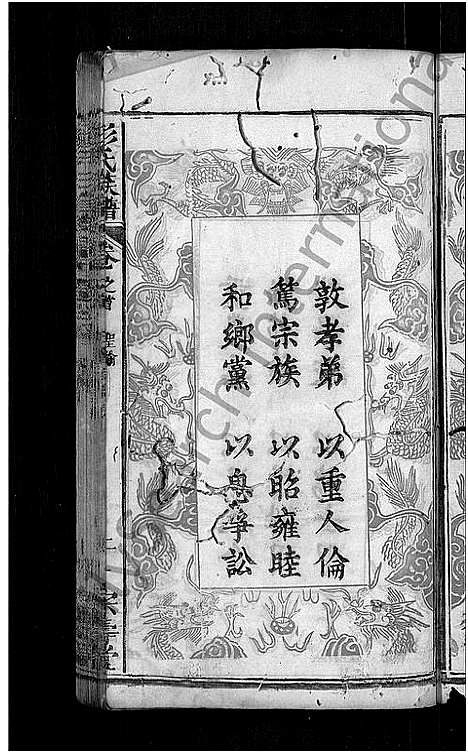 敦孝弟 以重人倫
篤宗族 以昭雍睦
和鄉黨 以息爭訟
彭氏族譜 卷之首 聖諭